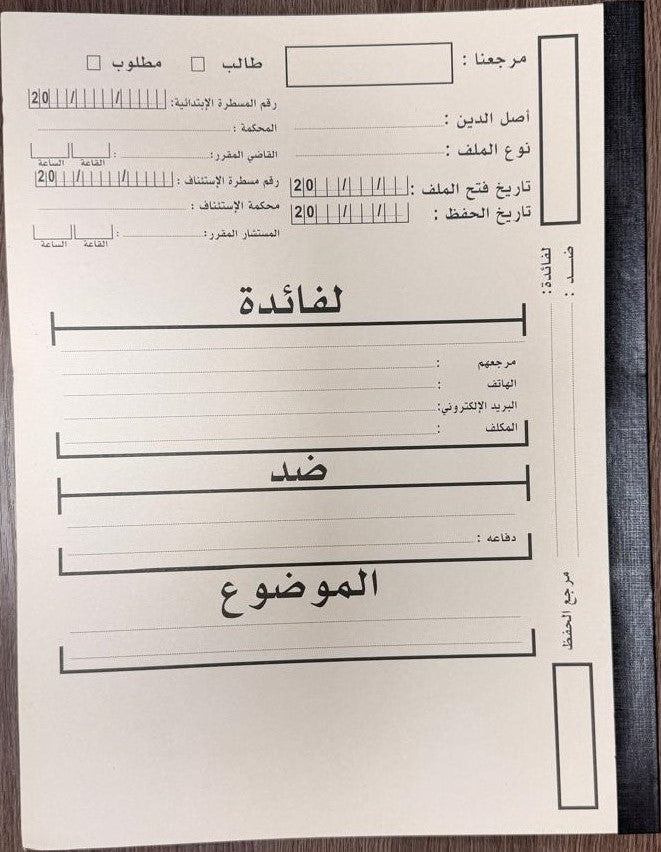 مرجعنا :
طالب
مطلوب
رقم المسطرة الإبتدائية: / / 20
أصل الدين :
المحكمة :
نوع الملف :
القاضي المقرر: :
القاعة
الساعة
تاريخ فتح الملف : 20 / /
رقم مسطرة الإستئناف : / / 20
تاريخ الحفظ : 20 / /
محكمة الإستئناف :
المستشار المقرر: :
القاعة
الساعة
ضد :
لفائدة:
لفائدة
مرجعهم :
الهاتف :
البريد الإلكتروني:
المكلف :
ضد
دفاعه :
الموضوع
مرجع الحفظ